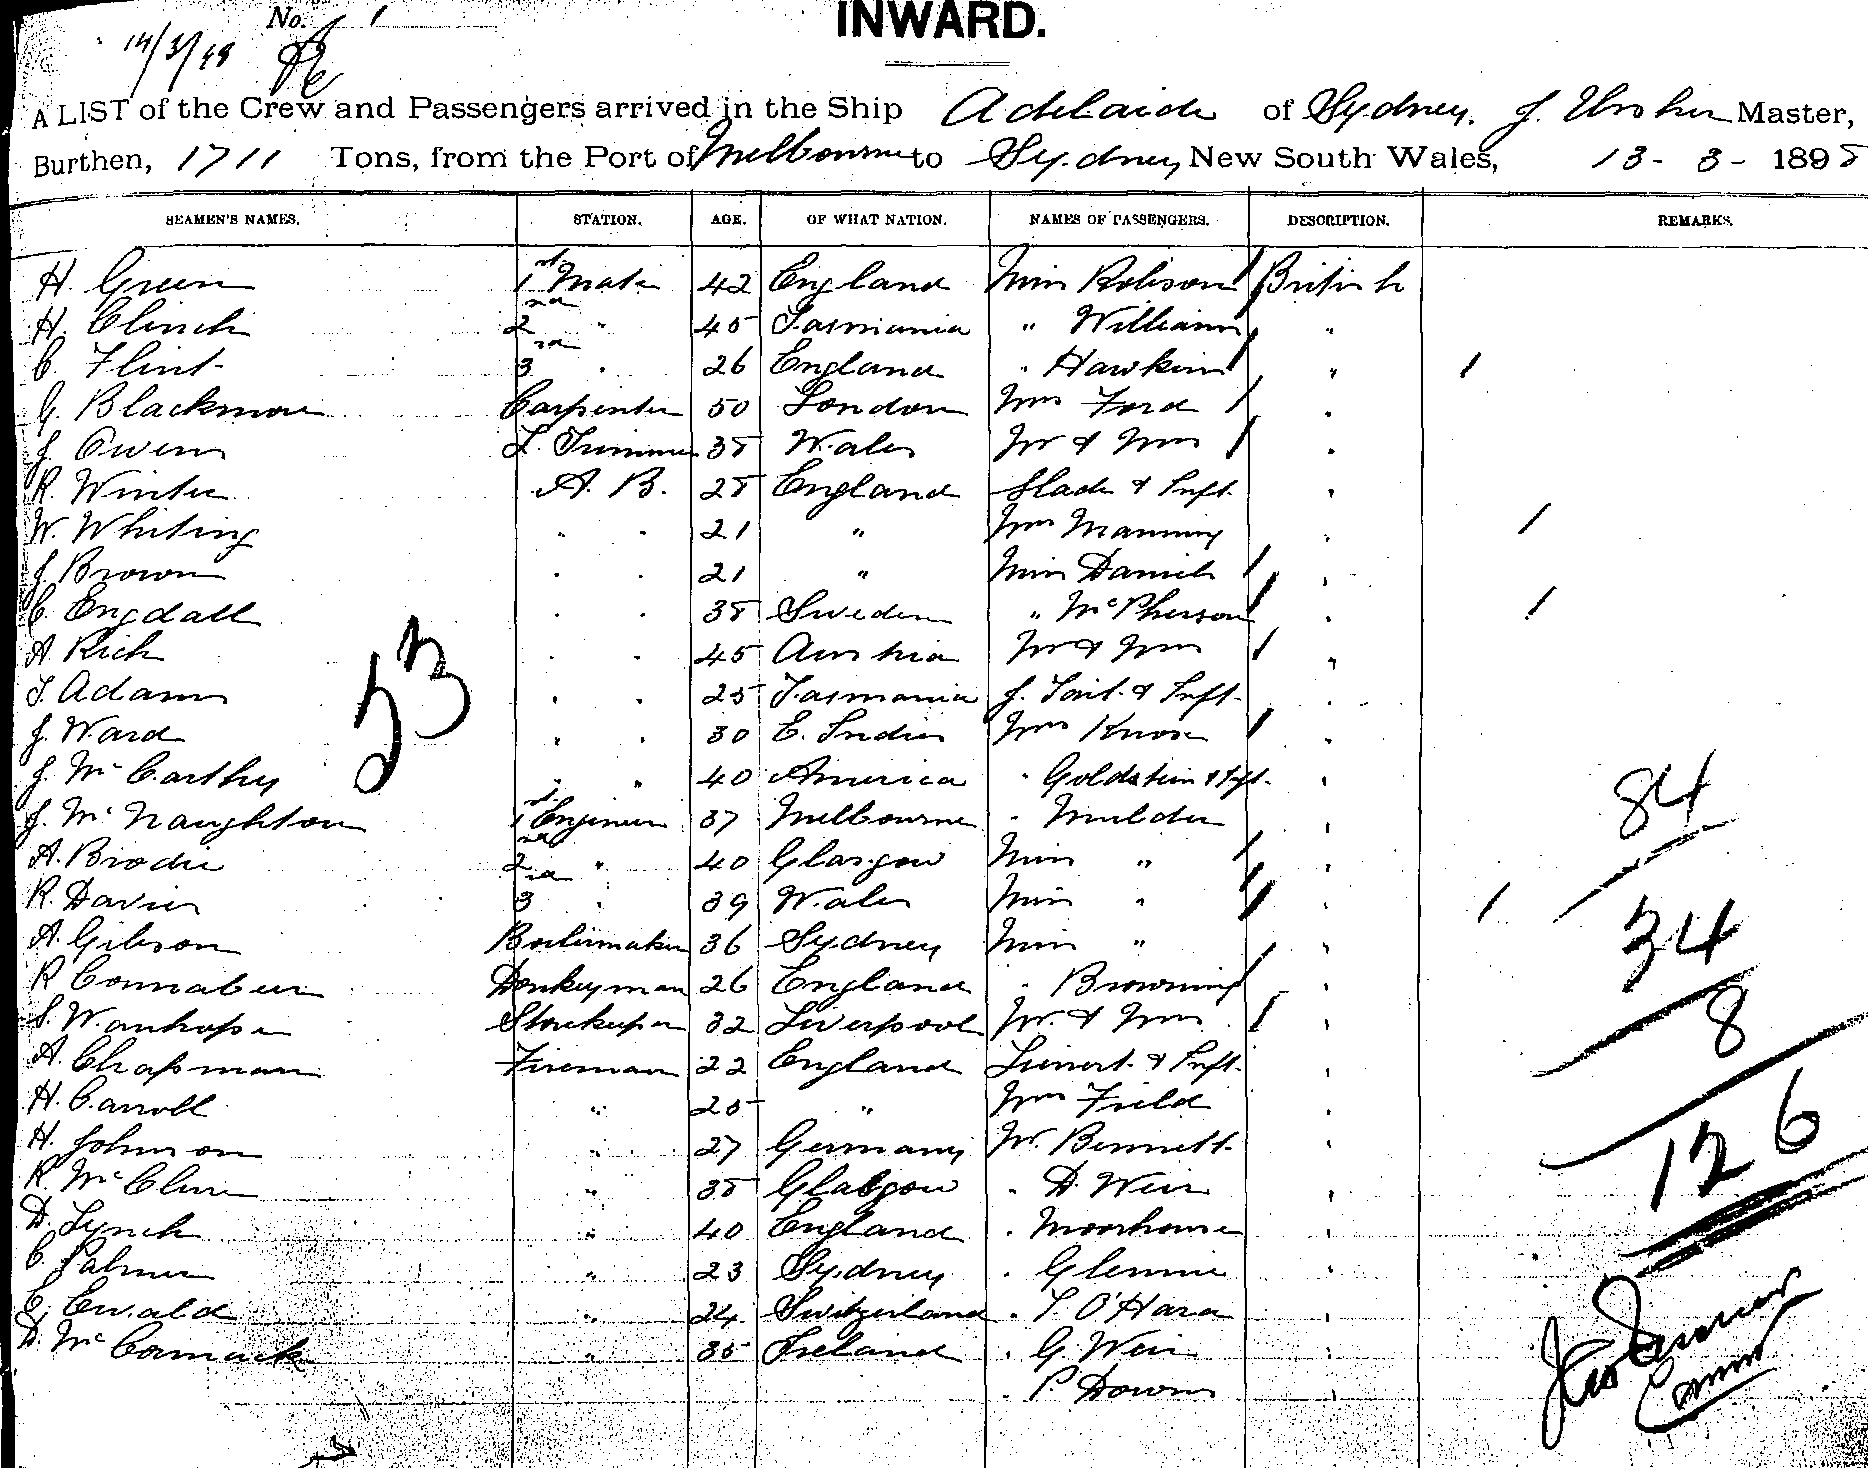 No. 1
INWARD.
14/3/98
A LIST of the Crew and Passengers arrived in the Ship Adelaide of Sydney, J. Master,
Burthen, 1711 Tons, from the Port of Melbourne to Sydney, New South Wales, 13 - 3 - 1898
SEAMEN'S NAMES. STATION. AGE. OF WHAT NATION. NAMES OF PASSENGERS. DESCRIPTION. REMARKS.
H. Green 1st Mate 42 England Miss Robison British
H. Clinch 2nd " 45 Tasmania " Williams "
C. Flint 3rd " 26 England " Hawkins "
G. Blackmore Carpenter 50 London Mrs Ford "
J. Owens L. Trimmer 38 Wales Mr & Mrs "
R. Winter A. B. 28 England Slade & Inft. "
W. Whiting " " 21 " Mrs Manning "
J. Brown " " 21 " Miss Daniels "
C. Engdall " " 38 Sweden " McPherson "
A. Rich " " 45 Austria Mr & Mrs "
T. Adams " " 25 Tasmania J. Tait & Inft. "
J. Ward " " 30 E. Indies Mrs Knox "
J. McCarthy " " 40 America " Goldstein & Inft. "
J. McNaughton 1st Engineer 37 Melbourne " Mulder "
A. Brodie 2nd " 40 Glasgow Miss " "
R. Davies 3rd " 39 Wales Miss " "
A. Gibson Boilermaker 36 Sydney Miss " "
R Connabeer Donkeyman 26 England " Browning "
S. Wanhope Storekeeper 32 Liverpool Mr. & Mrs "
A. Chapman Fireman 22 England Lienert & Inft. "
H. Carroll " 25 " Mrs Field "
H. Johnson " 27 Germany Mr. Bennett "
R. McClure " 38 Glasgow " D. Weir "
D. Lynch " 40 England " Moorhouse "
C. Palmer " 23 Sydney " Glennie "
E. Ewald " 24 Switzerland " T. O'Hara "
D. McCormack " 35 Ireland " G. Weir "
" P. Downs "
53
84
34
8
126